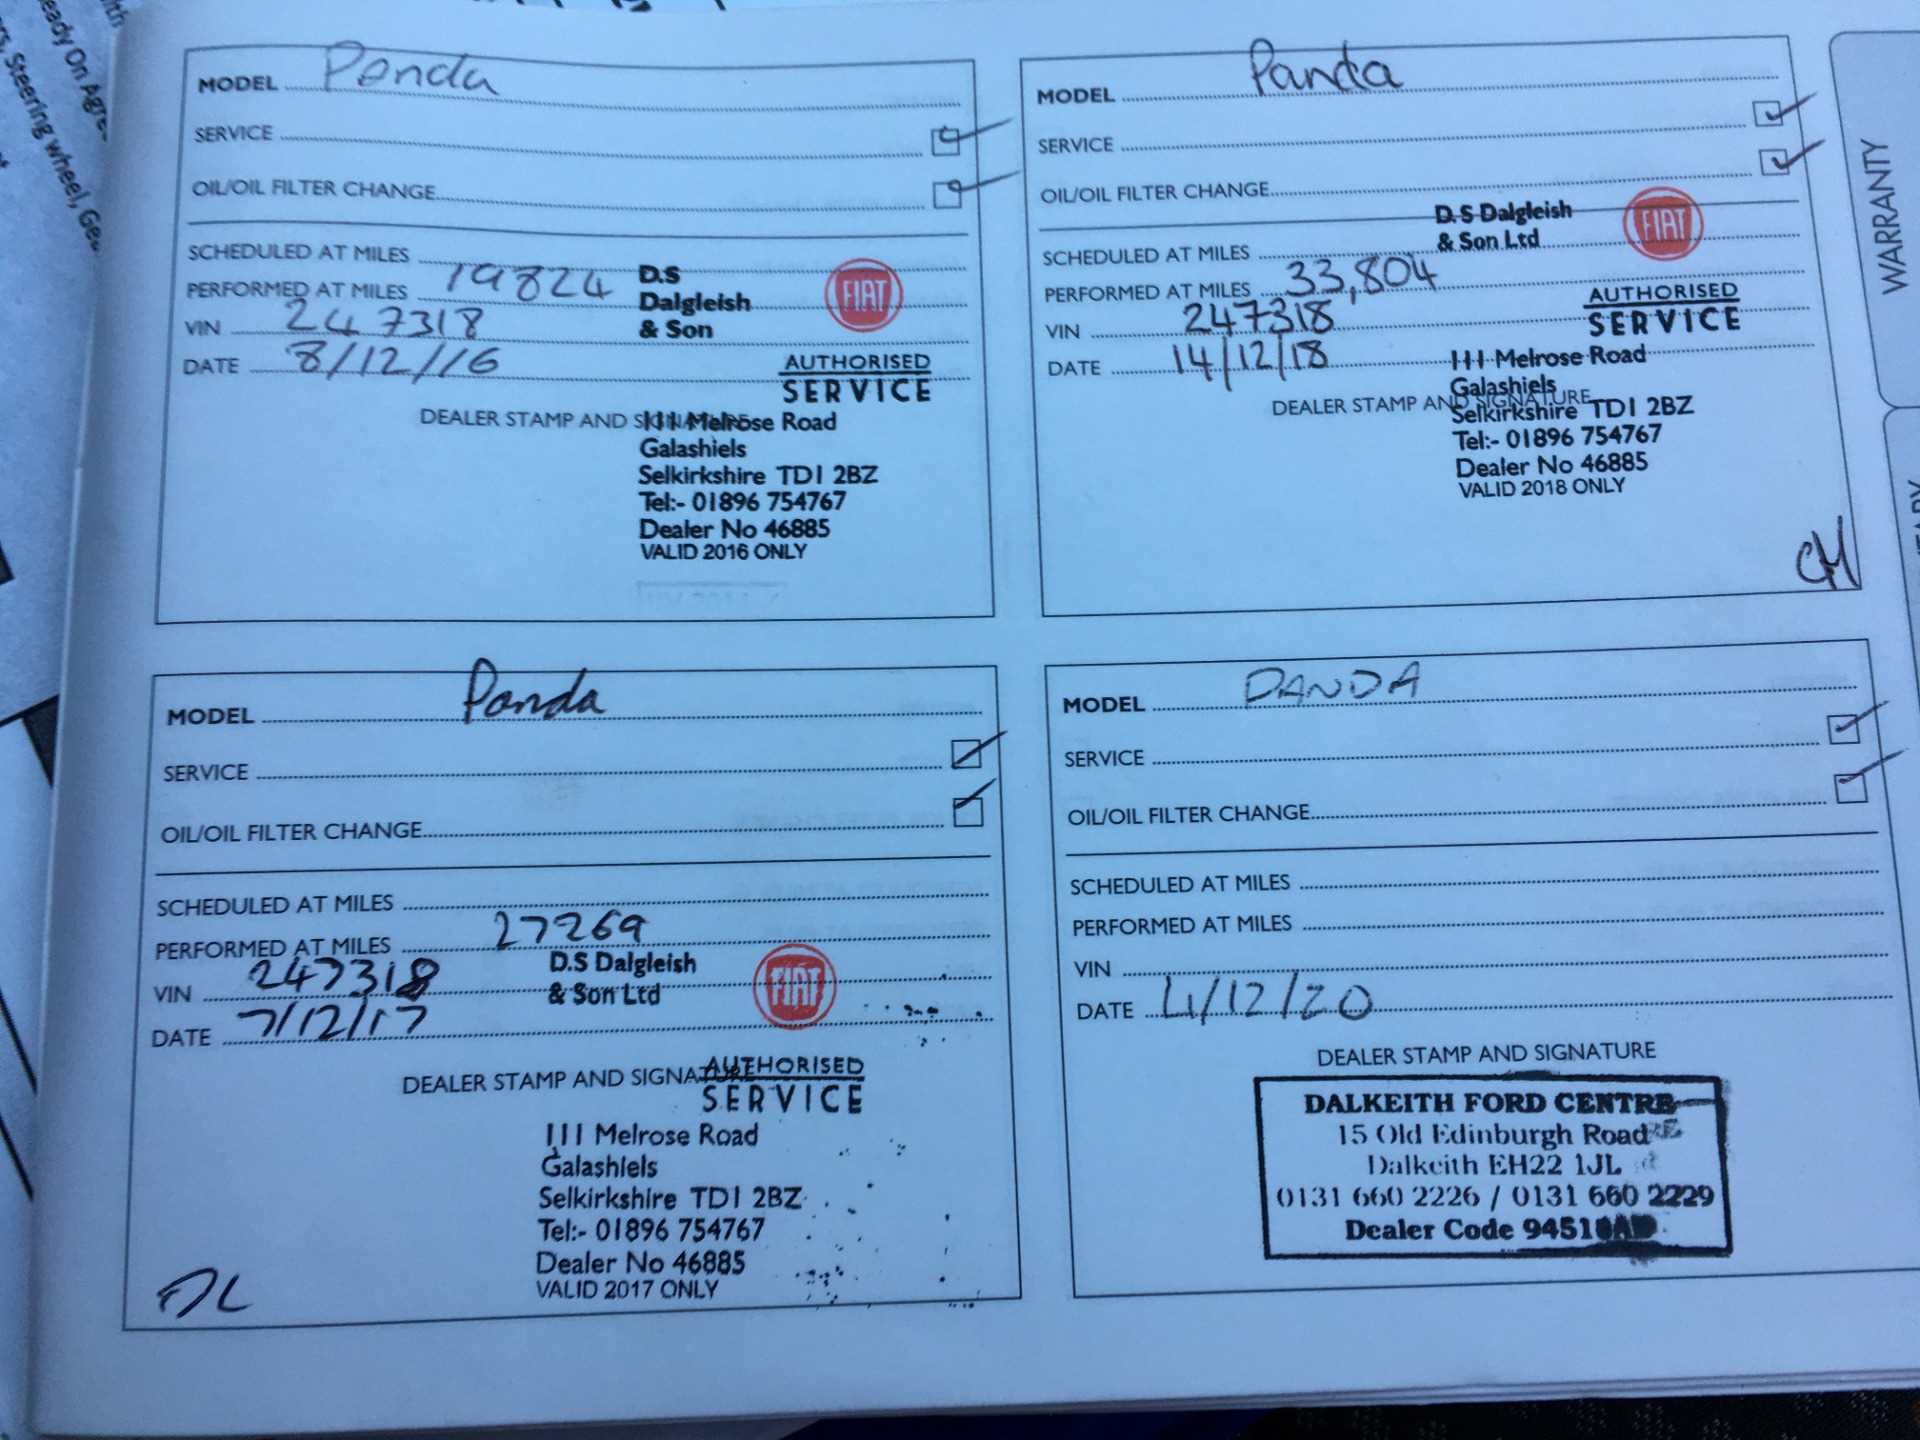 eady On Agre
rs, Steering wheel, Gea
MODEL Panda
SERVICE
OIL/OIL FILTER CHANGE
SCHEDULED AT MILES
PERFORMED AT MILES 19824
VIN 247318
DATE 8/12/16
D.S
Dalgleish
& Son
FIAT
AUTHORISED
SERVICE
DEALER STAMP AND SIGNATURE
111 Melrose Road
Galashiels
Selkirkshire TD1 2BZ
Tel:- 01896 754767
Dealer No 46885
VALID 2016 ONLY
MODEL Panda
SERVICE
OIL/OIL FILTER CHANGE
SCHEDULED AT MILES
PERFORMED AT MILES 33,804
VIN 247318
DATE 14/12/18
D.S Dalgleish
& Son Ltd
FIAT
AUTHORISED
SERVICE
DEALER STAMP AND SIGNATURE
111 Melrose Road
Galashiels
Selkirkshire TD1 2BZ
Tel:- 01896 754767
Dealer No 46885
VALID 2018 ONLY
CM
MODEL Panda
SERVICE
OIL/OIL FILTER CHANGE
SCHEDULED AT MILES
PERFORMED AT MILES 27269
VIN 247318
DATE 7/12/17
D.S Dalgleish
& Son Ltd
FIAT
AUTHORISED
SERVICE
DEALER STAMP AND SIGNATURE
111 Melrose Road
Galashiels
Selkirkshire TD1 2BZ
Tel:- 01896 754767
Dealer No 46885
VALID 2017 ONLY
MODEL PANDA
SERVICE
OIL/OIL FILTER CHANGE
SCHEDULED AT MILES
PERFORMED AT MILES
VIN
DATE 4/12/20
DEALER STAMP AND SIGNATURE
DALKEITH FORD CENTRE
15 Old Edinburgh Road
Dalkeith EH22 1JL
0131 660 2226 / 0131 660 2229
Dealer Code
WARRANTY